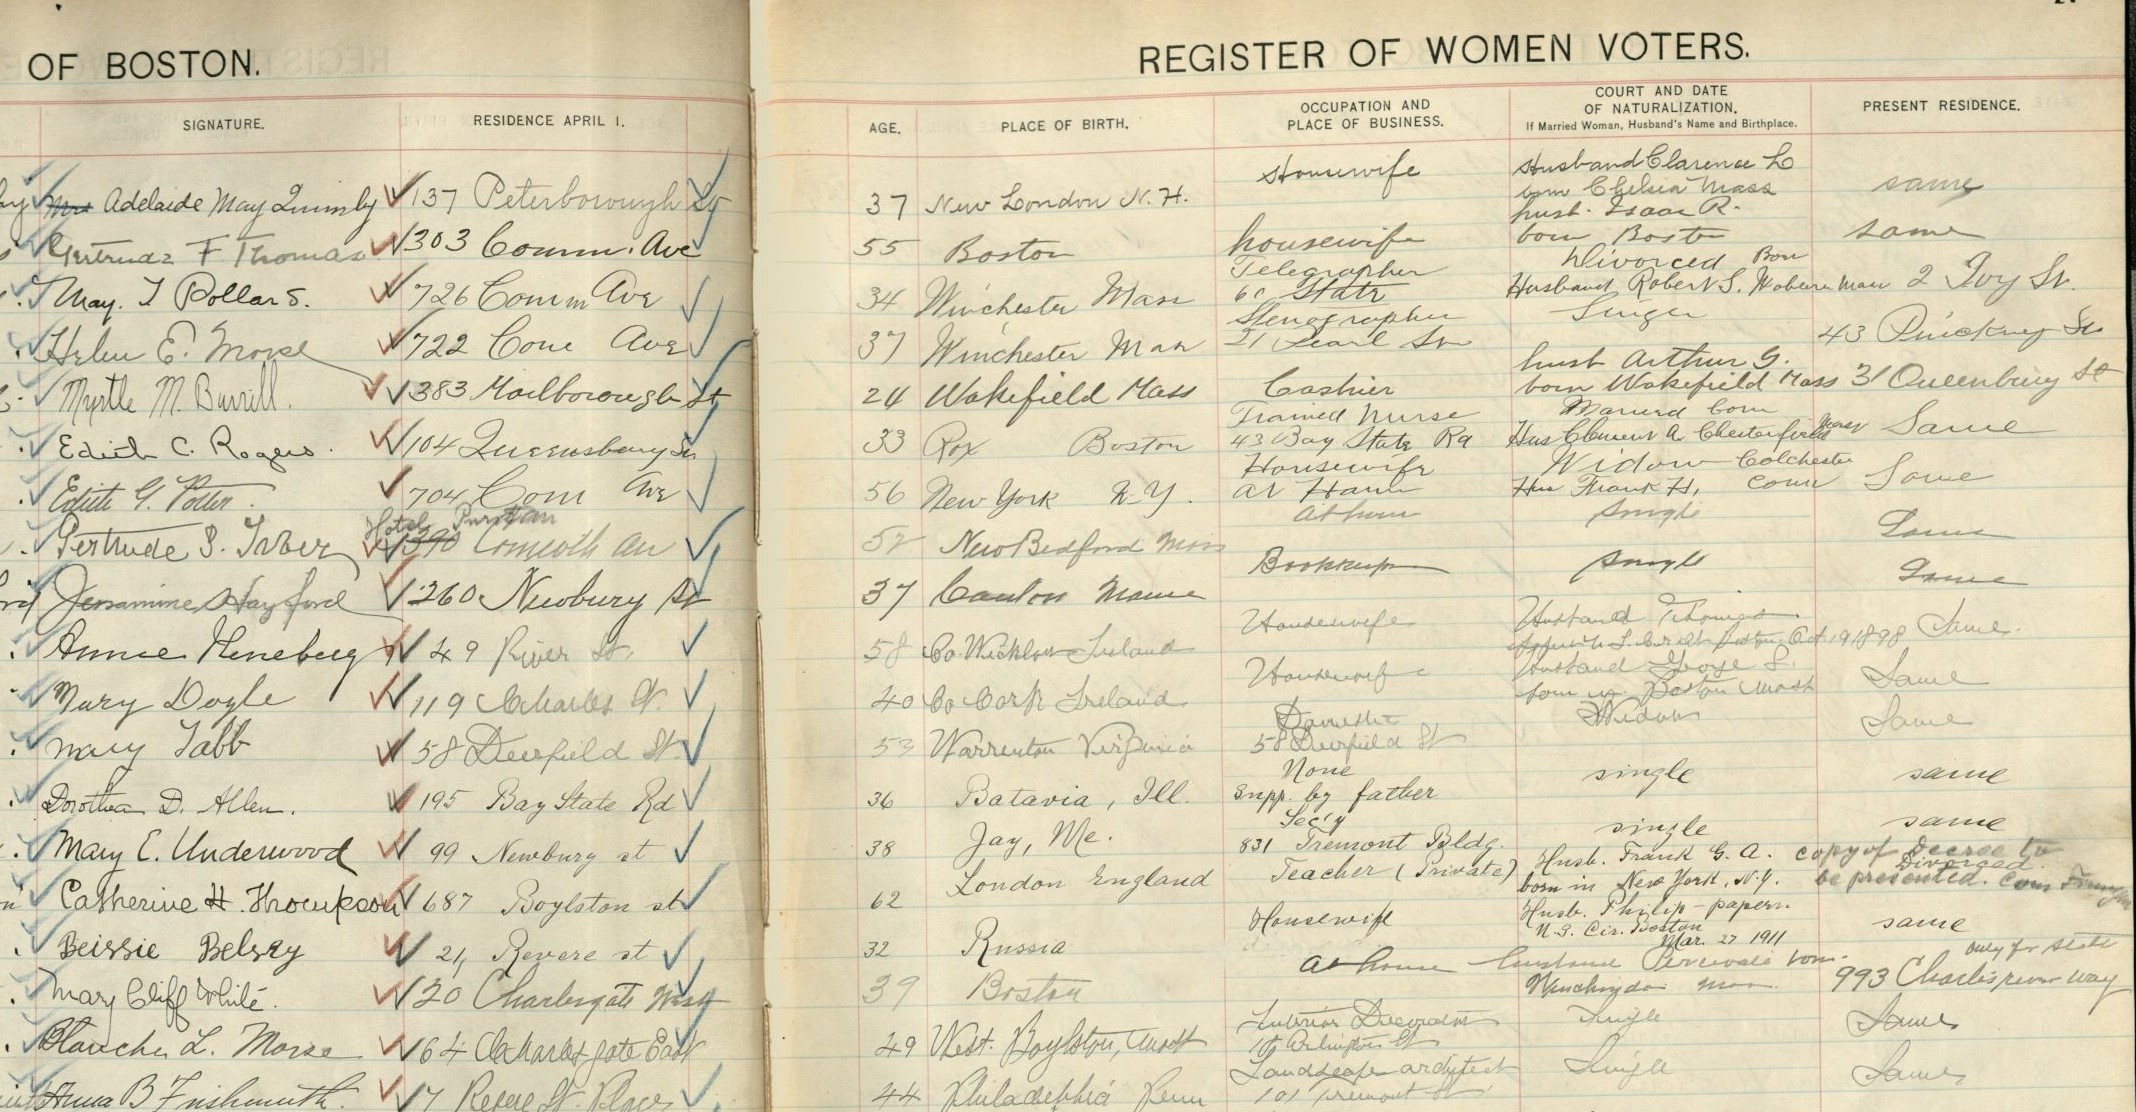 OF BOSTON.
REGISTER OF WOMEN VOTERS.
SIGNATURE.
RESIDENCE APRIL 1.
AGE.
PLACE OF BIRTH.
OCCUPATION AND
PLACE OF BUSINESS.
COURT AND DATE
OF NATURALIZATION.
If Married Woman, Husband's Name and Birthplace.
PRESENT RESIDENCE.
Mrs Adelaide May Quimby 137 Peterborough St 37 New London N. H. Housewife Husband Clarence L born Chelsea Mass same
Gertrude F Thomas 303 Comm. Ave 55 Boston housewife husb. Isaac R. born Boston same
May. T Pollard. 726 Comm Ave 34 Winchester Mass Telegrapher 60 State Divorced Born Husband Robert S. Woburn Mass 2 Ivy St.
Helen E. Morse 722 Com Ave 37 Winchester Mass Stenographer 21 Pearl St Single 43 Pinckney St
Myrtle M. Burrill. 383 Marlborough St 24 Wakefield Mass Cashier husb Arthur G. born Wakefield Mass 31 Queensbury St
Edith C. Rogers. 104 Queensbury St 33 Rox Boston Trained Nurse 43 Bay State Rd Married born Hus Clement A. Chesterfield Same
Edith G. Potter. 704 Com Ave 56 New York N.Y. Housewife at Home Widow Colchester Hus Frank H, Conn Same
Gertrude S. Taber Hotel Puritan 390 Comwlth Ave 52 New Bedford Mass At home Single Same
Jessamine Hayford 260 Newbury St 37 Canton Maine Bookkeeper Single Same
Annie Heneberg 49 River St. 58 Co. Wicklow Ireland Housewife Husband Thomas Boston Oct 19 1898 Same.
Mary Doyle 119 Charles St. 40 Co Cork Ireland Housewife Husband George S. born in Boston Mass Same
Mary Tabb 58 Deerfield St. 53 Warrenton Virginia Domestic 58 Deerfield St Widow Same
Dorothea D. Allen. 195 Bay State Rd 36 Batavia, Ill. None Supp. by father single same
Mary E. Underwood 99 Newbury st 38 Jay, Me. Sec'y 831 Tremont Bldg. single same
Catherine H. Thompson 687 Boylston st 62 London England Teacher (Private) Husb. Frank G. A. born in New York, N.Y. copy of Decree to Divorced be presented.
Beissie Belsey 21 Revere st 32 Russia Housewife Husb. Philip - papers. U.S. Cir. Boston Mar. 27 1911 same
Mary Cliff White. 20 Charlesgate West 39 Boston At home husband Percival born. Winchendon Mass. only for State 993 Charles river way
Blanche L. Morse 64 Charlesgate East 49 West. Boylston, Mass Interior Decorator Arlington St Single Same
Anna B Frishmuth. 7 Place 44 Philadelphia Penn Landscape architect 101 Tremont St Single Same